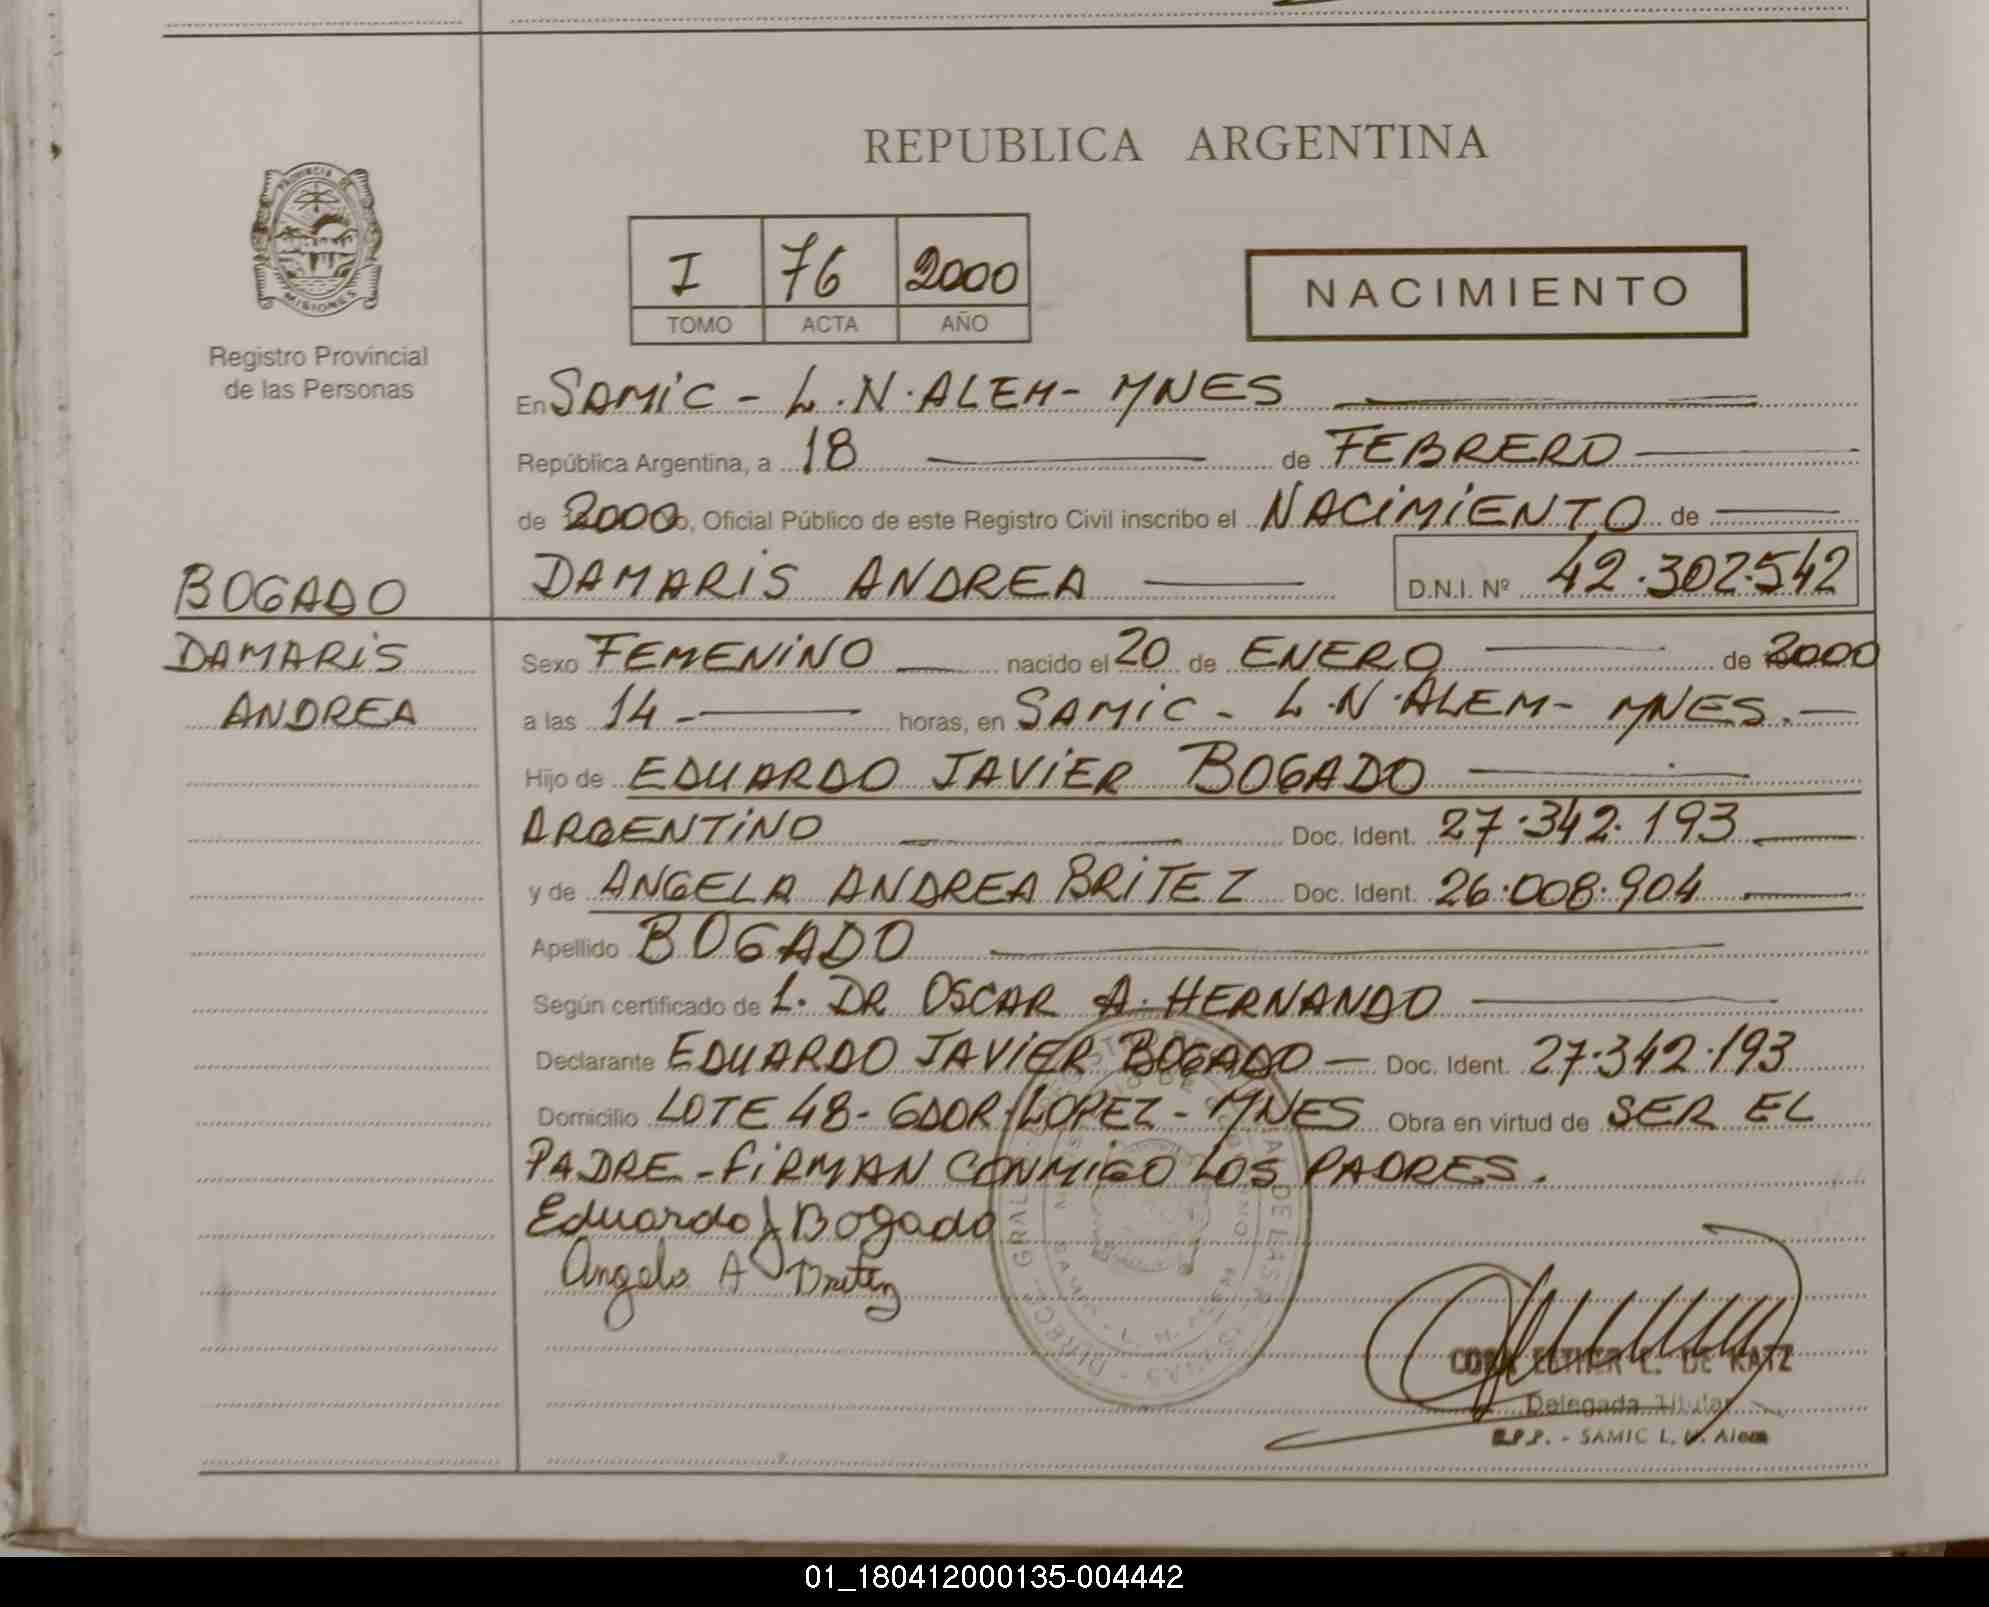 REPUBLICA ARGENTINA
PROVINCIA DE
MISIONES
Registro Provincial
de las Personas
I 76 2000
TOMO ACTA AÑO
NACIMIENTO
En SAMIC - L.N.ALEM - MNES
República Argentina, a 18 de FEBRERO
de 2000, Oficial Público de este Registro Civil inscribo el NACIMIENTO de
BOGADO
DAMARIS ANDREA D.N.I. Nº 42.302.542
DAMARIS
ANDREA
Sexo FEMENINO nacido el 20 de ENERO de 2000
a las 14 - horas, en SAMIC - L.N.ALEM - MNES. -
Hijo de EDUARDO JAVIER BOGADO
ARGENTINO Doc. Ident. 27.342.193
y de ANGELA ANDREA BRITEZ Doc. Ident. 26.008.904
Apellido BOGADO
Según certificado de L. DR OSCAR A. HERNANDO
Declarante EDUARDO JAVIER BOGADO - Doc. Ident. 27.342.193
Domicilio LOTE 48 - GDOR LOPEZ - MNES Obra en virtud de SER EL
PADRE - FIRMAN CONMIGO LOS PADRES.
Eduardo J Bogado
Angela A Britez
ESTHER E. DE KATZ
Delegada Titular
R.P.P. - SAMIC L. N. Alem
01_180412000135-004442